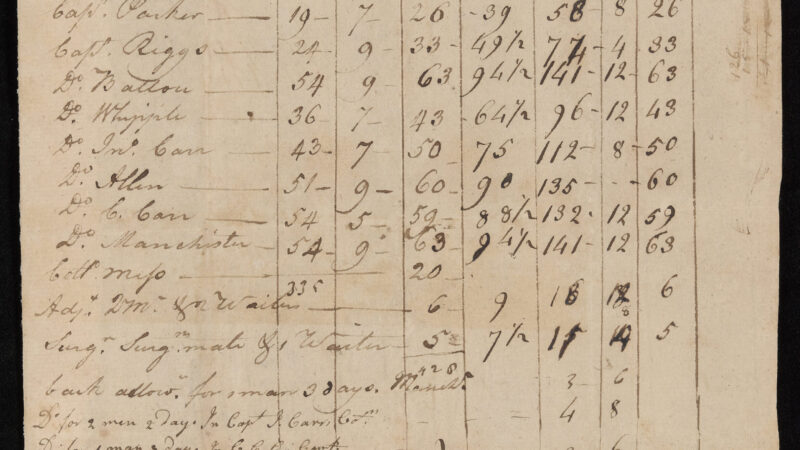 Capt. Parker — 19 – 7 – 26 – 39 58 8 26
Capt. Riggs — 24 – 9 – 33 – 49 1/2 74 – 4 33
Do. Ballou — 54 9 63 94 1/2 141 – 12 – 63
Do. Whipple — 36 – 7 – 43 – 64 1/2 96 – 12 43
Do. Jno. Carr — 43 – 7 50 – 75 112 – 8 – 50
Do. Allen — 51 – 9 – 60 – 90 135 – – – 60
Do. C. Carr — 54 5 – 59 – 88 1/2 132 – 12 59
Do. Manchister — 54 – 9 – 63 – 94 1/2 141 – 12 – 63
Coll. mess — 20 –
335
Adjt. & Waiters — 6 – 9 18 6
Surgn. Surgn. mate & 1 Waiter — 5 – 7 1/2 15 5
428
Cash allowd. for 1 man 3 days. 3 – 6
Do. for 2 men 2 days In Capt J. Carrs 4 8
Do. for 1 man 6